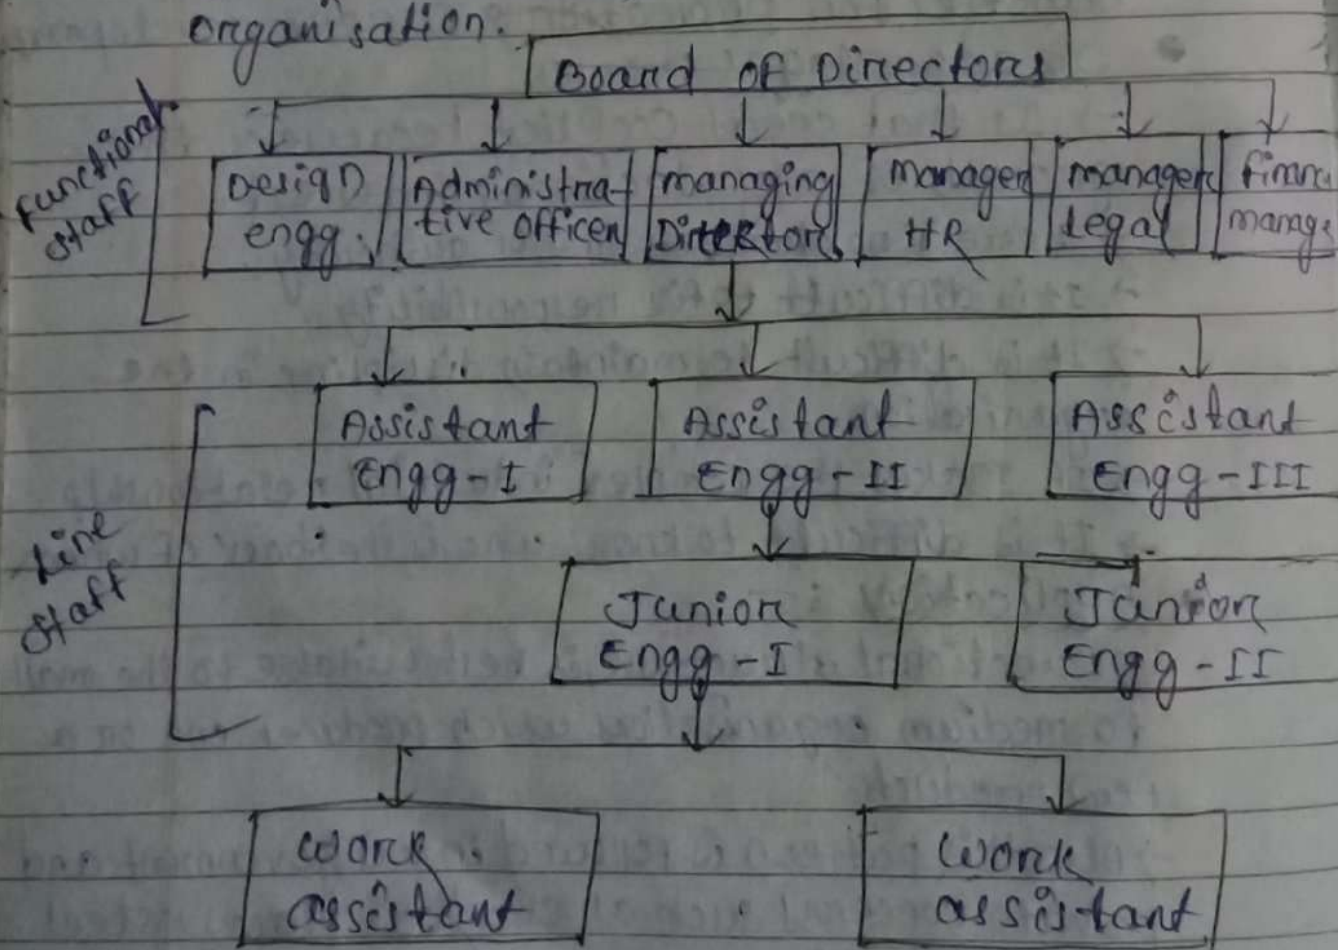 organisation.
Board of Directors
Functional
staff
Design
engg.
Administra-
tive officer
managing
Director
manager
HR
manager
Legal
finan
manage
Assistant
Engg-I
Assistant
Engg-II
Assistant
Engg-III
Line
staff
Junior
Engg-I
Junior
Engg-II
work
assistant
work
assistant